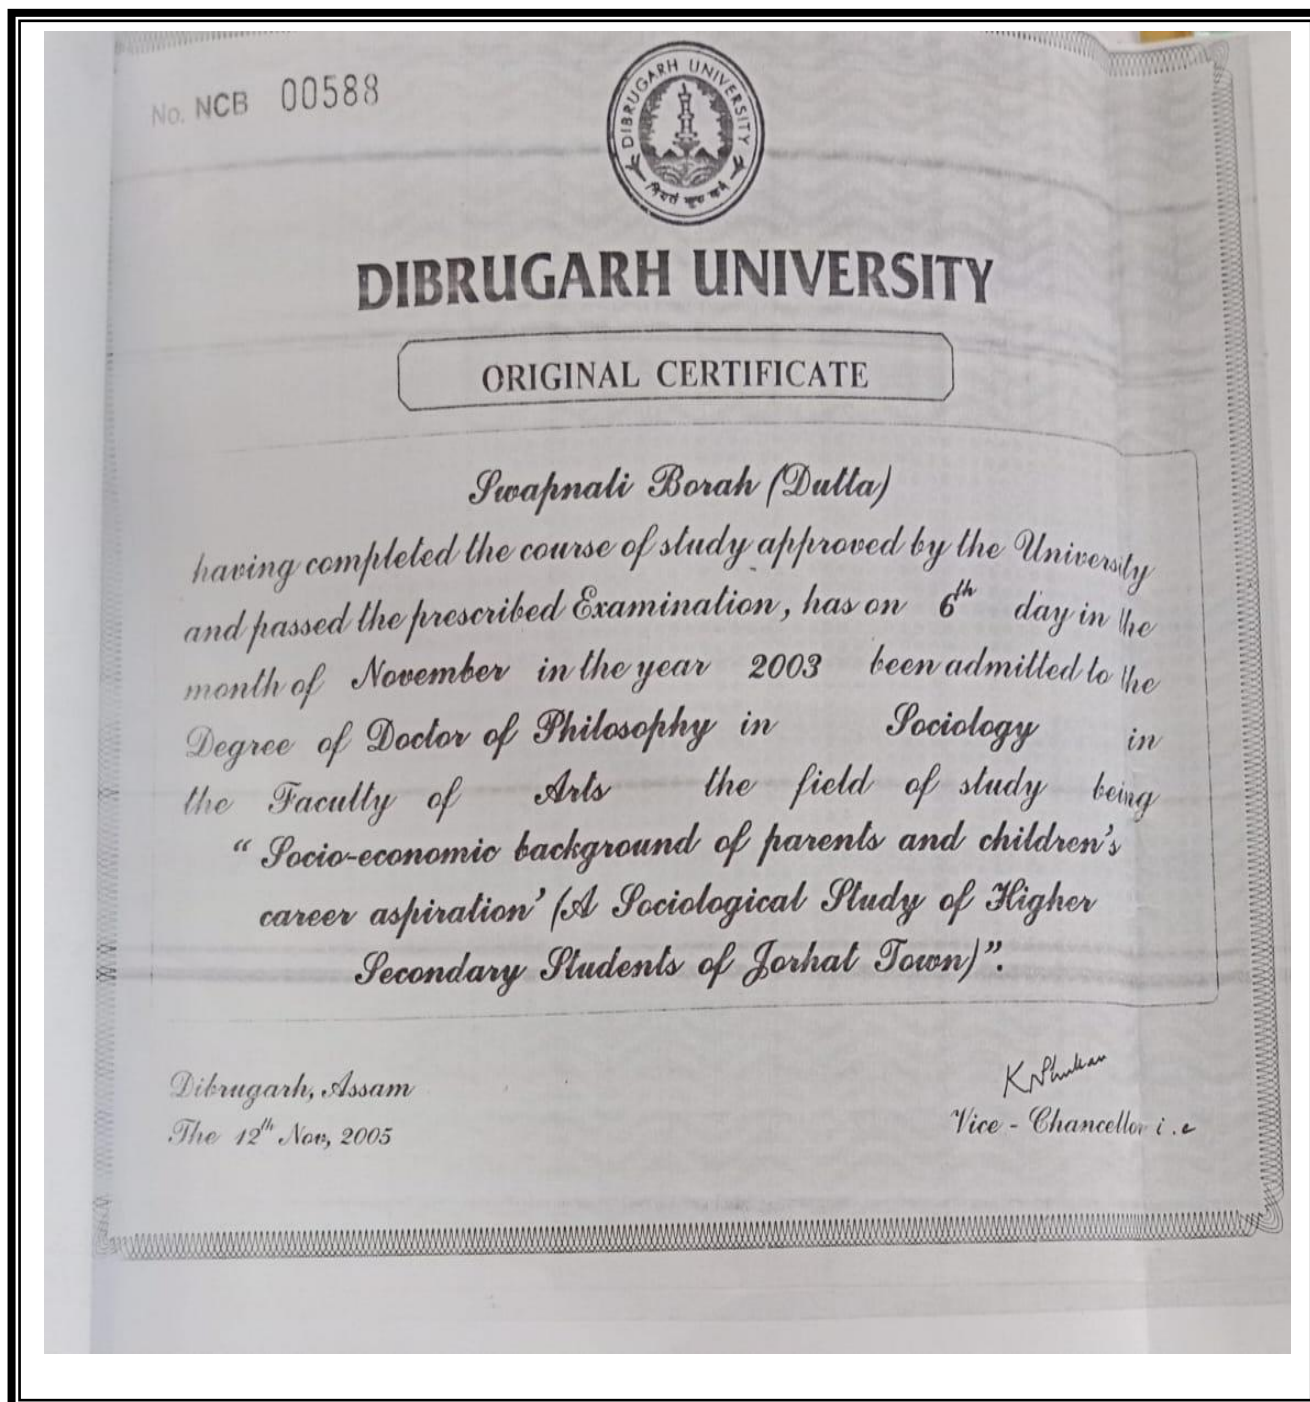 No. NCB 00588
DIBRUGARH UNIVERSITY
नियतं कुरु कर्म
DIBRUGARH UNIVERSITY
ORIGINAL CERTIFICATE
Swapnali Borah (Dutta)
having completed the course of study approved by the University
and passed the prescribed Examination, has on 6th day in the
month of November in the year 2003 been admitted to the
Degree of Doctor of Philosophy in Sociology in
the Faculty of Arts the field of study being
“ Socio-economic background of parents and children's
career aspiration’ (A Sociological Study of Higher
Secondary Students of Jorhat Town)”.
Dibrugarh, Assam
The 12th Nov, 2005
Vice - Chancellor i.c